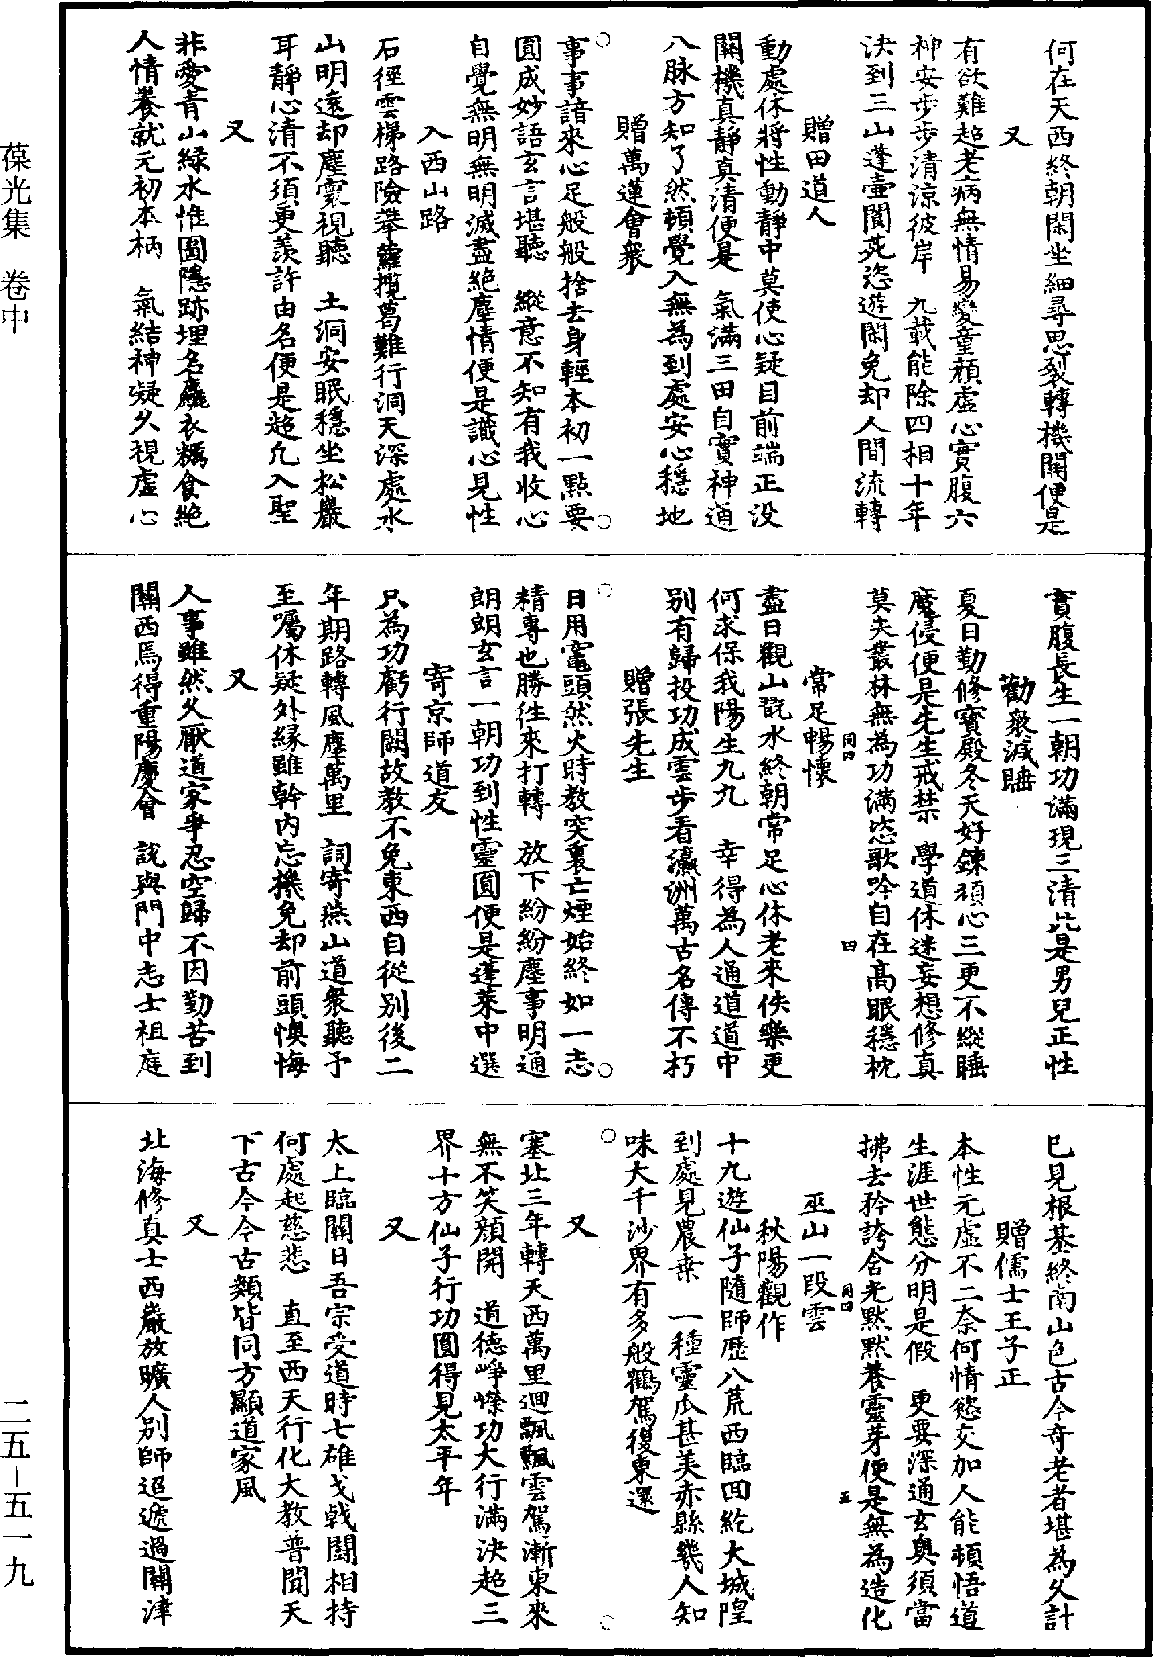 何在天西終朝閑坐細尋思裂轉機關便是
又
有欲難超老病無情易變童顏虛心實腹六
神安步步清涼彼岸　九載能除四相十年
決到三山蓬壺閬苑恣遊閑免却人間流轉
贈田道人
動處休將性動靜中莫使心疑目前端正没
關機真靜真清便是　氣滿三田自實神通
八脉方知了然頓覺入無為到處安心穩地
贈萬蓮會衆
事事諳來心足般般捨去身輕本初一點要
圓成妙語玄言堪聽　縱意不知有我收心
自覺無明無明滅盡絶塵情便是識心見性
入西山路
石徑雲梯路險攀蘿攬葛難行洞天深處水
山明遠却塵寰視聽　土洞安眠穩坐松巖
耳靜心清不須更羨許由名便是超凡入聖
又
非愛青山綠水惟圖隱跡埋名麄衣糲食絶
人情養就元初本柄　氣結神凝久視虛心
實腹長生一朝功滿現三清此是男兒正性
勸衆減睡
夏日勤修寶殿冬天好鍊頑心三更不縱睡
魔侵便是先生戒禁　學道休迷妄想修真
莫失叢林無為功滿恣歌吟自在高眠穩枕
常足暢懷
盡日觀山翫水終朝常足心休老來佚樂更
何求保我陽生九九　幸得為人通道道中
別有歸投功成雲步看瀛洲萬古名傳不朽
贈張先生
日用竈頭然火時教突裏亡煙始終如一志
精專也勝往來打轉　放下紛紛塵事明通
朗朗玄言一朝功到性靈圓便是蓬萊中選
寄京師道友
只為功虧行闕故教不免東西自從別後二
年期路轉風塵萬里　詞寄燕山道衆聽予
至囑休疑外緣雖幹内忘機免却前頭懊悔
又
人事雖然久厭道家爭忍空歸不因勤苦到
關西焉得重陽慶會　說與門中志士祖庭
已見根基終南山色古今奇老者堪為久計
贈儒士王子正
本性元虛不二奈何情慾交加人能頓悟道
生涯世態分明是假　更要深通玄奧須當
拂去矜誇含光默默養靈芽便是無為造化
巫山一段雲
秋陽觀作
十九遊仙子隨師歷八荒西臨回紇大城隍
到處見農桒　一種靈瓜甚美赤縣幾人知
味大千沙界有多般鶴駕復東還
又
塞北三年轉天西萬里迴飄飄雲駕漸東來
無不笑顏開　道德崢嶸功大行滿決超三
界十方仙子行功圓得見太平年
又
太上臨關日吾宗受道時七雄戈戟鬪相持
何處起慈悲　直至西天行化大教普聞天
下古今今古類皆同方顯道家風
又
北海修真士西巖放曠人別師迢遞過關津
葆光集　卷中
二五－五一九